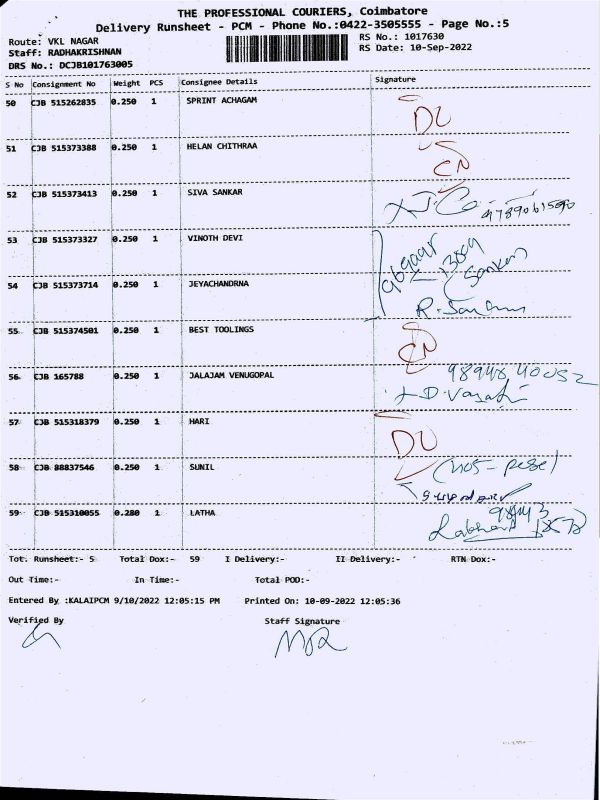 THE PROFESSIONAL COURIERS, Coimbatore
Delivery Runsheet - PCM - Phone No.:0422-3505555 - Page No.:5
Route: VKL NAGAR RS No.: 1017630
Staff: RADHAKRISHNAN RS Date: 10-Sep-2022
DRS No.: DCJB101763005
S No Consignment No Weight PCS Consignee Details Signature
50 CJB 515262835 0.250 1 SPRINT ACHAGAM
51 CJB 515373388 0.250 1 HELAN CHITHRAA
CN
52 CJB 515373413 0.250 1 SIVA SANKAR
53 CJB 515373327 0.250 1 VINOTH DEVI
54 CJB 515373714 0.250 1 JEYACHANDRNA
55 CJB 515374501 0.250 1 BEST TOOLINGS
CN
56 CJB 165788 0.250 1 JALAJAM VENUGOPAL
57 CJB 515318379 0.250 1 HARI
58 CJB 88837546 0.250 1 SUNIL
59 CJB 515310055 0.280 1 LATHA
Tot. Runsheet:- 5 Total Dox:- 59 I Delivery:- II Delivery:- RTN Dox:-
Out Time:- In Time:- Total POD:-
Entered By :KALAIPCM 9/10/2022 12:05:15 PM Printed On: 10-09-2022 12:05:36
Verified By Staff Signature